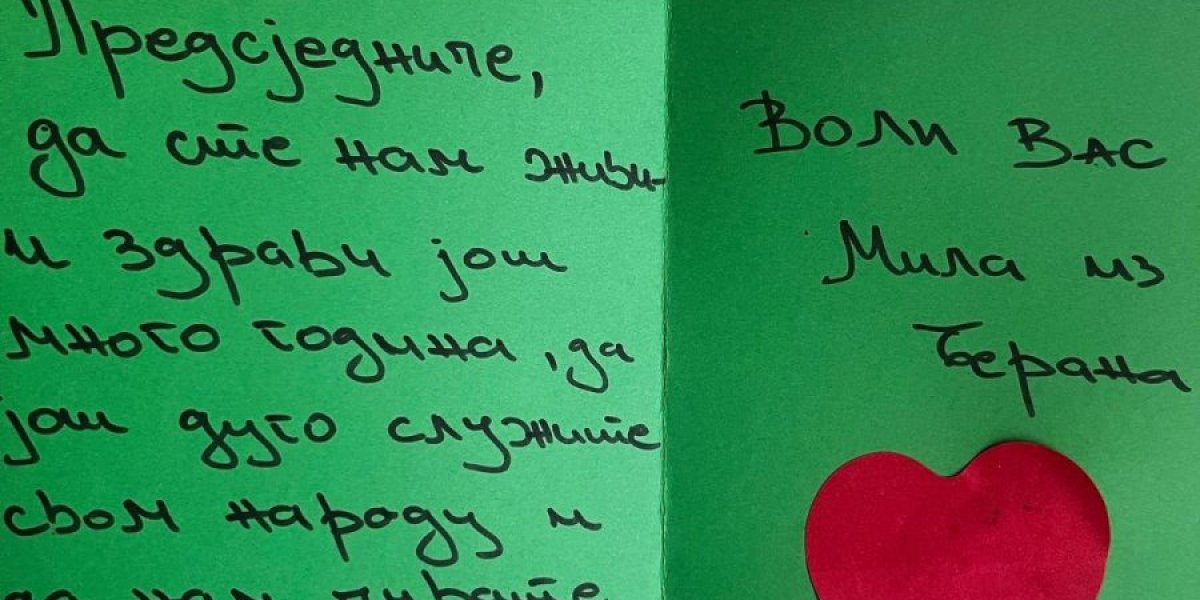 Предсједниче,
да сте нам живи
и здрави још
много година, да
још дуго служите
свом народу и
да нам чувате
Воли Вас
Мила из
Берана